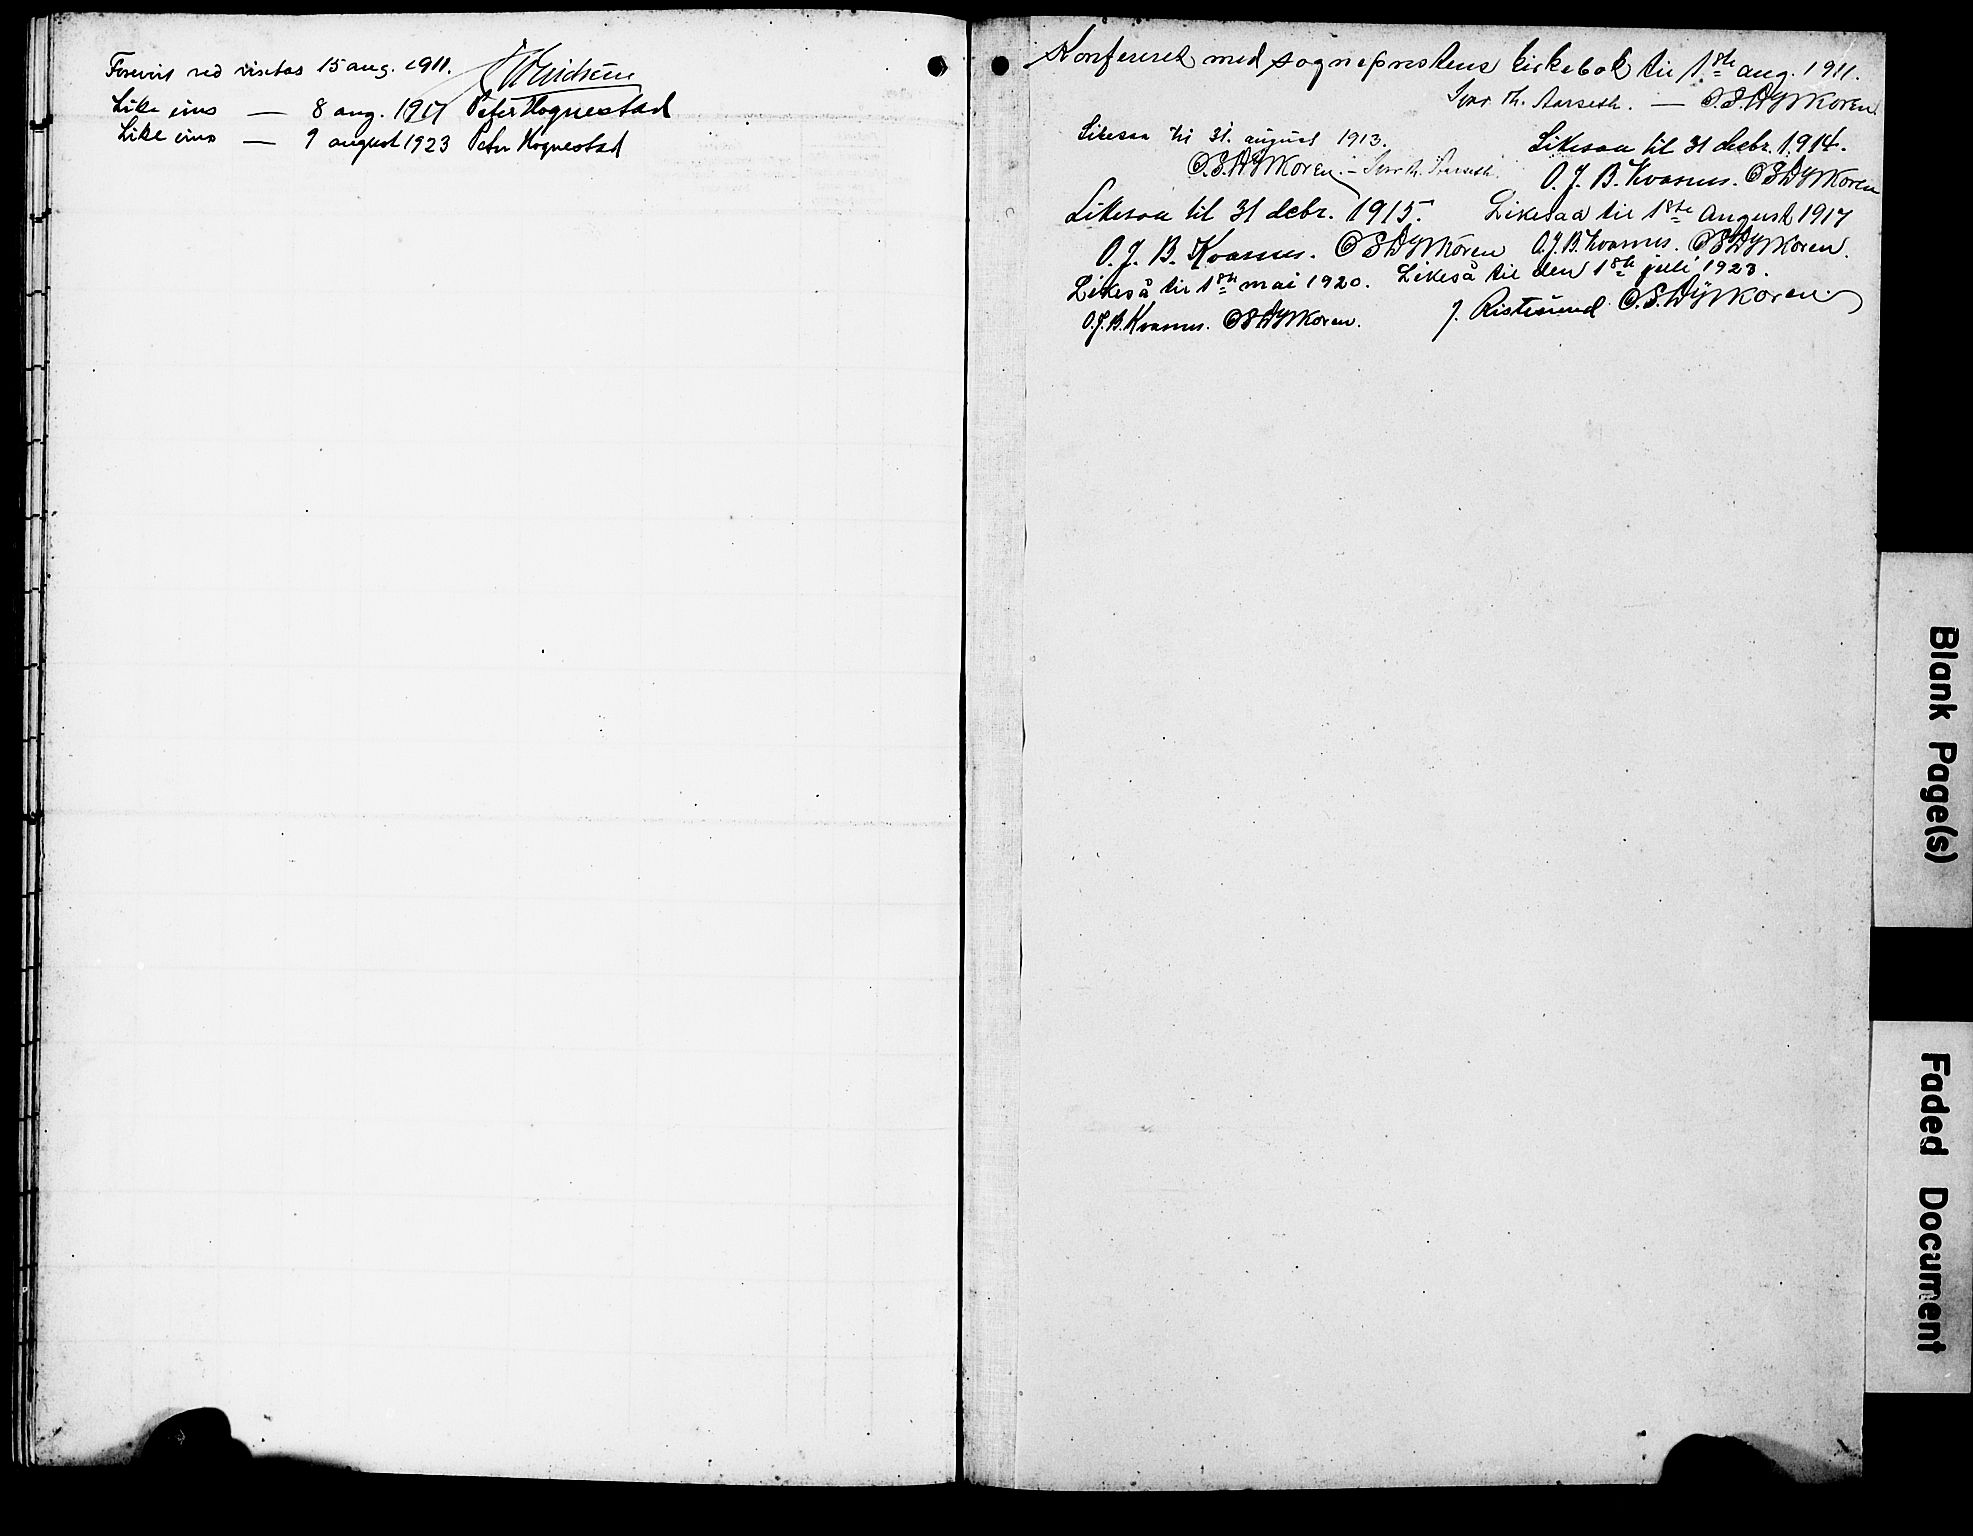 Forevist ved visitas 15 aug. 1911.
Like eins — 8 aug. 1917 Peter Hognestad
Like eins — 9 august 1923 Peter Hognestad
Konfereret med sogneprestens kirkebok til 1ste aug. 1911.
Ivar Th. Aarseth. — O.S. Dyrkoren
Likesaa til 31. august 1913.
O.S. Dyrkoren. – Ivar Th. Aarseth.
Likesaa til 31 decbr. 1914.
O. J. B. Kvasnes. O S Dyrkoren
Likesaa til 31 debr. 1915.
O. J. B. Kvasnes. O S Dyrkoren
Likesaa til 1ste August 1917
O.J.B. Kvasnes. O S Dyrkoren.
Likeså til 1ste mai 1920.
O.J.B. Kvasnes. O S Dyrkoren.
Likeså til den 1ste juli 1923.
J. Ristesund O.S. Dyrkoren
Blank Page(s)
Faded Document